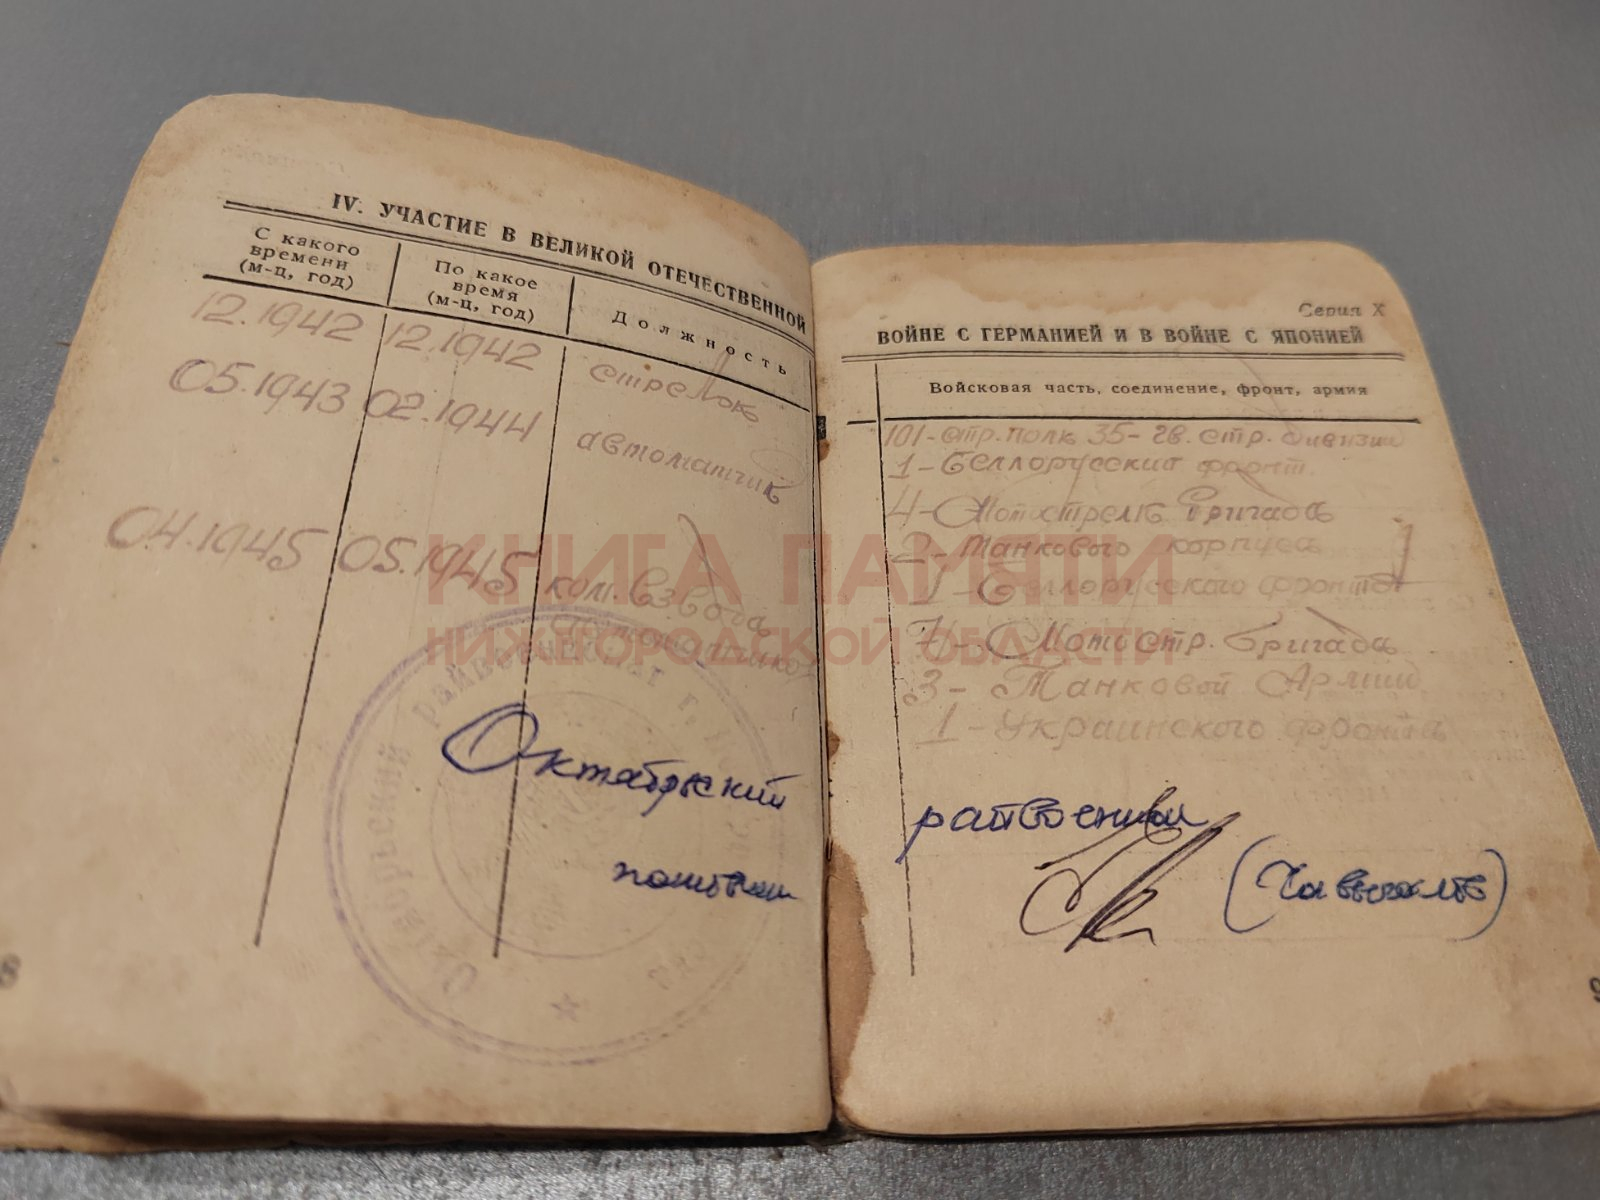 IV. УЧАСТИЕ В ВЕЛИКОЙ ОТЕЧЕСТВЕННОЙ
С какого времени (м-ц, год)
По какое время (м-ц, год)
Должность
12.1942 12.1942 стрелок
05.1943 02.1944 автоматчик
04.1945 05.1945 ком. взвода
Октябрьский
8
Серия X
ВОЙНЕ С ГЕРМАНИЕЙ И В ВОЙНЕ С ЯПОНИЕЙ
Войсковая часть, соединение, фронт, армия
101- стр. полк 35- гв. стр. дивизии
1- Беллорусский фронт.
4- Мотострелк бригада
2- Танкового корпуса
1- Беллорусского фронта
71- Мотостр. бригада
3- Танковой Армии
1- Украинского фронта
райвоенком
9
КНИГА ПАМЯТИ
НИЖЕГОРОДСКОЙ ОБЛАСТИ
Октябрьский райвоенкомат г.